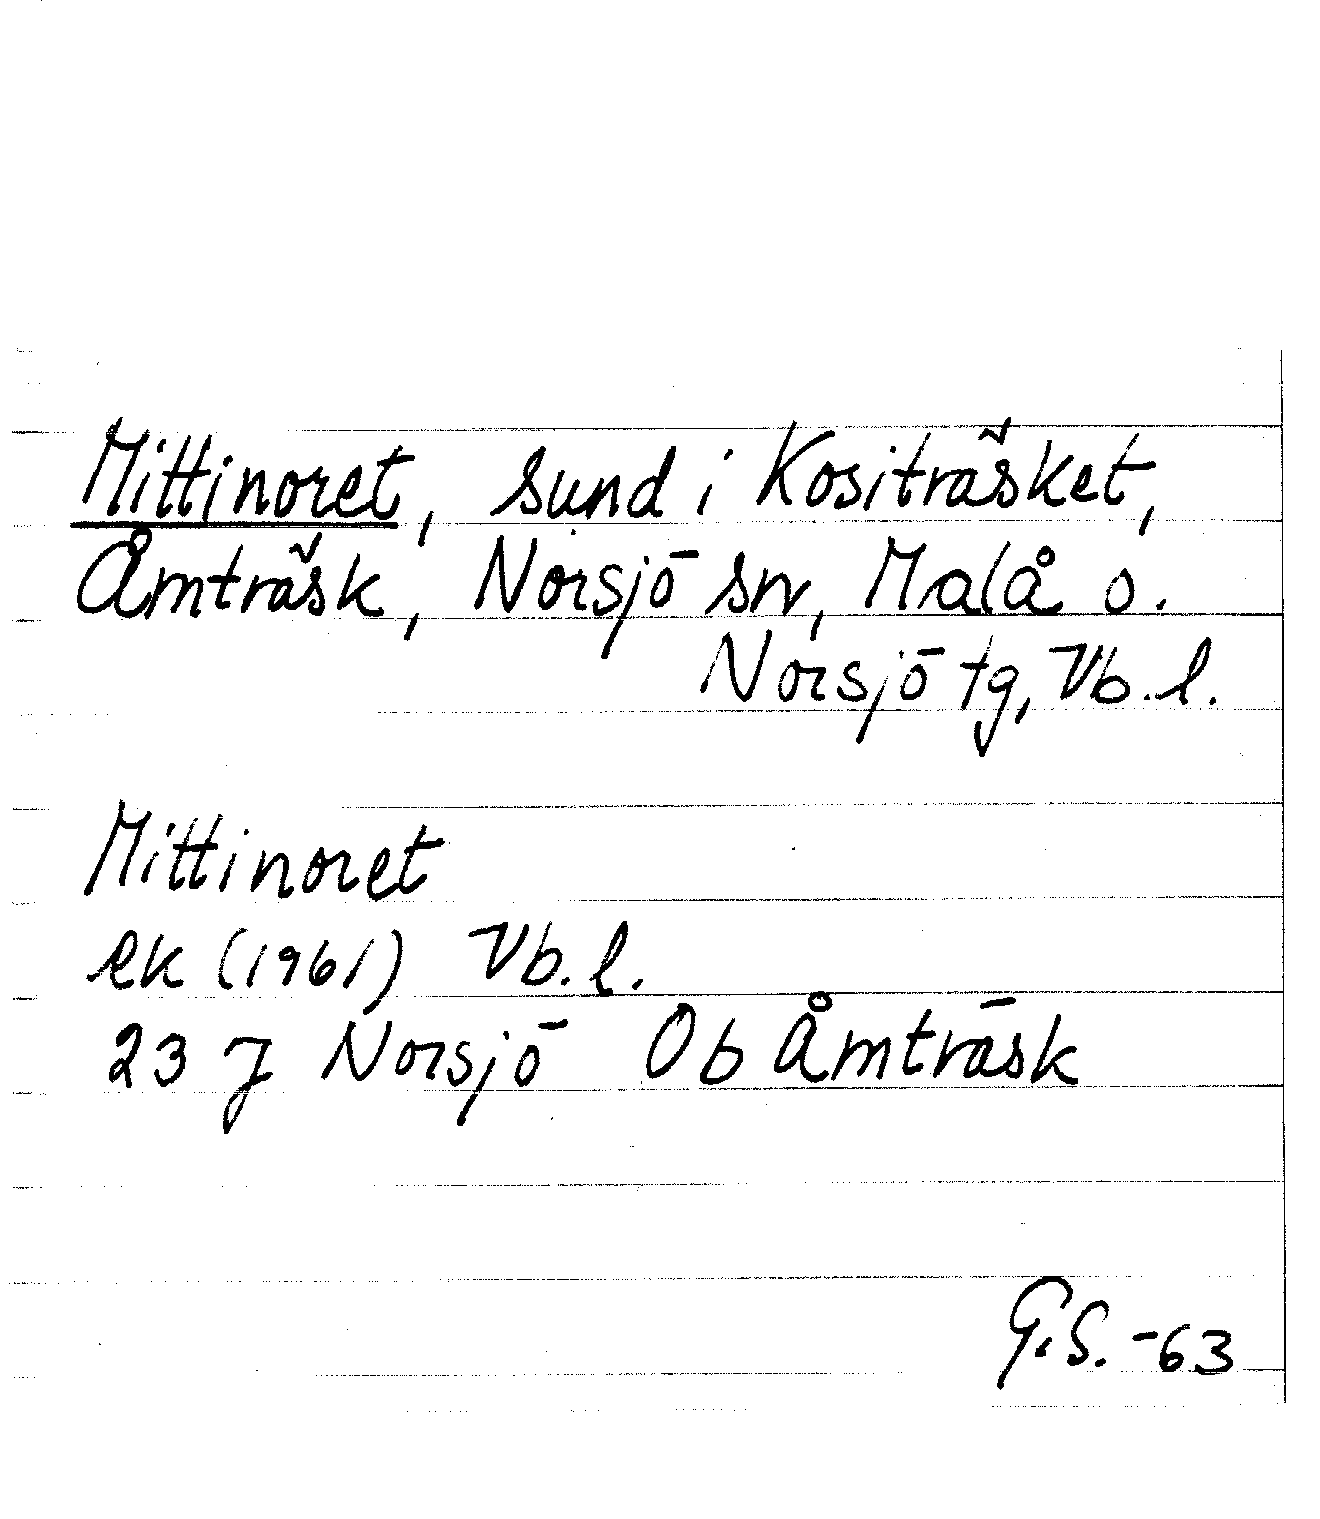 Mittinoret, sund i Kositräsket,
Åmträsk, Norsjö sn, Malå o.
Norsjö tg, Vb. l.
Mittinoret
ek (1961) Vb. l.
23 J Norsjö Ob Åmträsk
G.S. -63